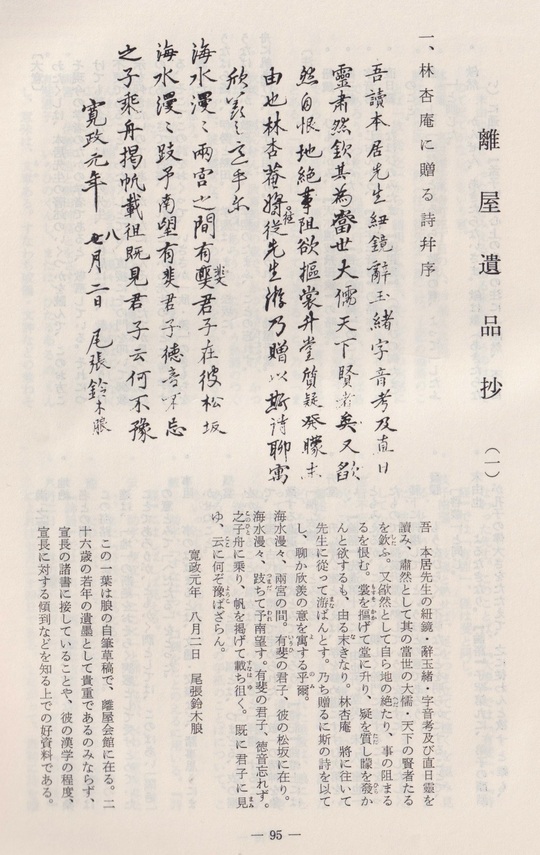 離屋遺品抄(一)
一、林杏庵に贈る詩幷序
吾讀本居先生紐鏡辭玉緒字音考及直日
靈肅然欽其為當世大儒天下賢者矣又欿
然自恨地絶事阻欲摳裳升堂質疑發矇末
由也林杏菴將往從先生游乃贈以斯詩聊寓
欣羨之意乎尓
海水漫〻兩宮之間有斐君子在彼松坂
海水漫〻跂予南望有斐君子德音不忘
之子乘舟揭帆載徂既見君子云何不豫
寛政元年 八月二日 尾張鈴木朖
吾 本居先生の紐鏡・辭玉緒・字音考及び直日靈を
讀み、肅然として其の當世の大儒、天下の賢者たる
を欽ふ。又欿然として自ら地の絶たり、事の阻まる
るを恨む。裳を摳げて堂に升り、疑を質し矇を發か
んと欲するも、由る末きなり。林杏菴 將に往いて
先生に從って游ばんとす。乃ち贈るに斯の詩を以て
し、聊か欣羨の意を寓する乎爾。
海水漫々、兩宮の間。有斐の君子、彼の松坂に在り。
海水漫々、跂ちて予南望す。有斐の君子、德音忘れず。
之子舟に乘り、帆を揭げて載ち徂く。既に君子に見
ゆ、云に何ぞ豫ばざらん。
寛政元年 八月二日 尾張鈴木朖
この一葉は朖の自筆草稿で、離屋会館に在る。二
十六歳の若年の遺墨として貴重であるのみならず、
宣長の諸書に接していることや、彼の漢学の程度、
宣長に対する傾到などを知る上での好資料である。
— 95 —